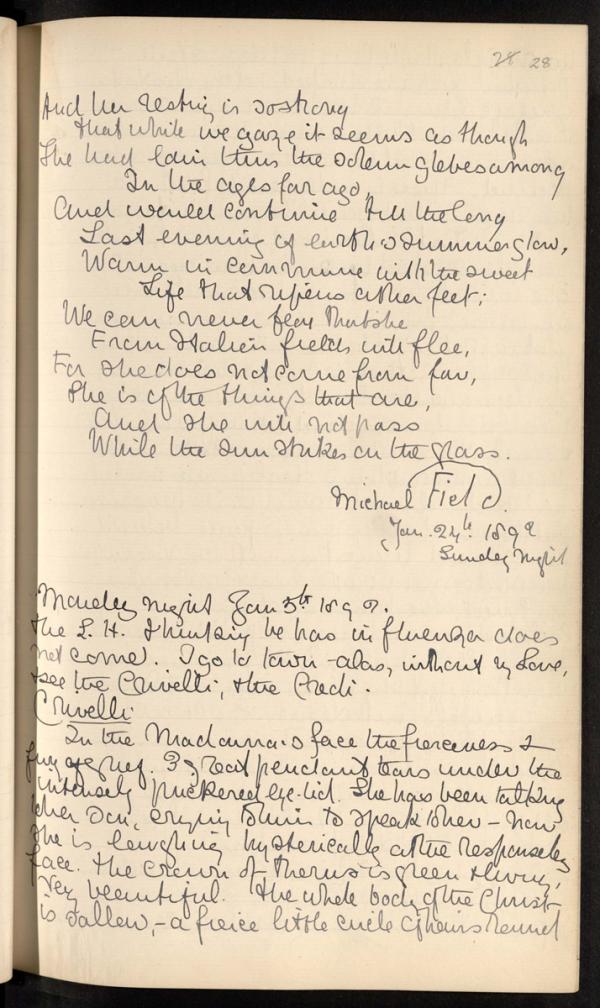 28 28
And her resting is so strong
That while we gaze it seems as though
She had lain thus the solemn glebes among
In the ages far ago,
And would continue till the long
Last evening of earth's summer glow,
Warm in commune with the sweet
Life that ripens at her feet;
We can never fear that she
From Italian fields will flee,
For she does not come from far,
She is of the things that are,
And she will not pass
While the sun strikes on the grass.
Michael Field.
Jan. 24th 1892
Sunday night
Monday night Jan 5th 189
The L. H. thinking he has influenza does
not come. I go to town - alas, without my Love,
& see the Crivelli, & the Credi.
Crivelli
In the Madonna's face the fierceness &
fury of grief. 3 great pendant tears under the
intensely puckered eye-lid. She has been talking
to her Son, crying to him to speak to her - now
she is laughing hysterically at the responseless
face. The crown of thorns is green & living,
very beautiful. The whole body of the Christ
is sallow, - a fierce little circle of hairs round